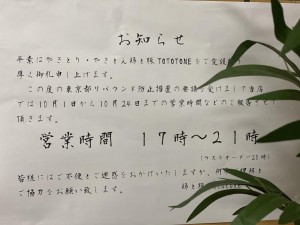 お知らせ
平素はやきとり・やきとん 姉と豚 TOTOTONE をご愛顧
厚く御礼申し上げます。
この度の東京都リバウンド防止措置の要請を受けまして当店
では10月1日から10月24日までの営業時間などのご報告させて
頂きます。
営業時間 17時〜21時
(ラストオーダー20時)
皆様にはご不便とご迷惑をおかけいたしますが、何卒
ご協力をお願い致します。